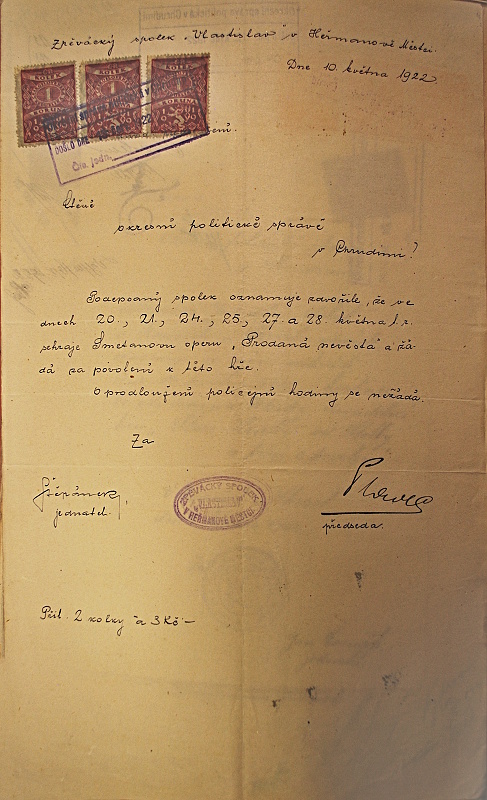 Zpěvácký spolek „Vlastislav“ v Heřmanově Městci.
Dne 10. května 1922
KOLEK KOLEK KOLEK
1 1
KORUNA KORUNA
DOŠLO DNE 1922
Čís. jedn.
Ctěné
okresní politické správě
v Chrudimi!
Podepsaný spolek oznamuje zdvořile, že ve
dnech 20., 21., 24., 25., 27. a 28. května t. r.
sehraje Smetanovu operu „Prodaná nevěsta“ a žá-
dá za povolení k této hře.
O prodloužení policejní hodiny se nežádá.
Za
Štěpánek,
jednatel.
ZPĚVÁCKÝ SPOLEK
„VLASTISLAV“
V HEŘMANOVĚ MĚSTCI
předseda.
Příl. 2 kolky á 3 Kč –